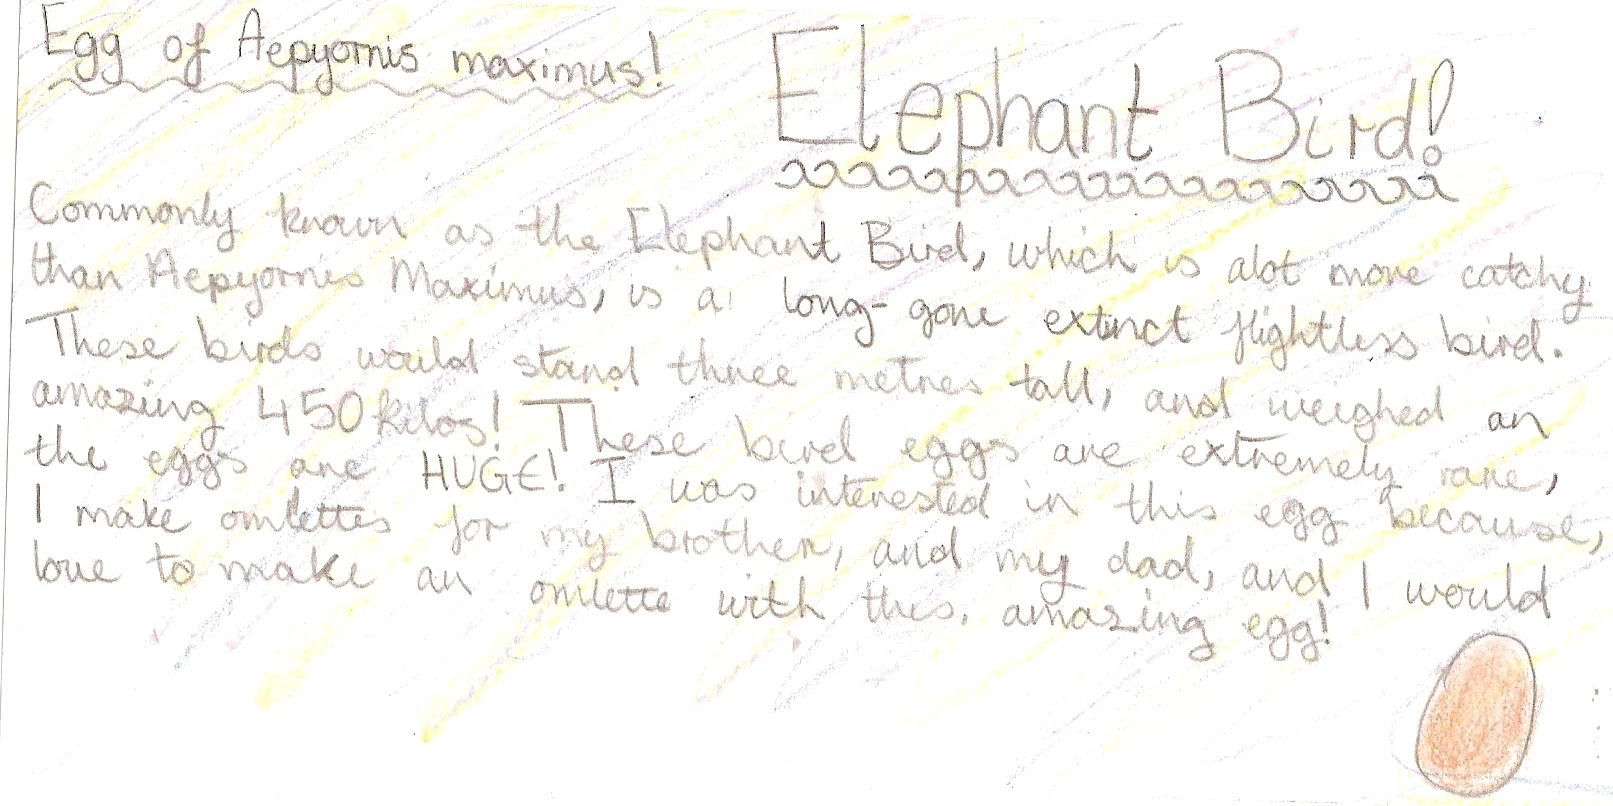 Egg of Aepyornis maximus!
Elephant Bird!
Commonly known as the Elephant Bird, which is alot more catchy
than Aepyornis Maximus, is a long-gone extinct flightless bird.
These birds would stand three metres tall, and weighed an
amazing 450 kilos! These bird eggs are extremely rare,
the eggs are HUGE! I was interested in this egg because,
I make omlettes for my brother, and my dad, and I would
love to make an omlette with this, amazing egg!